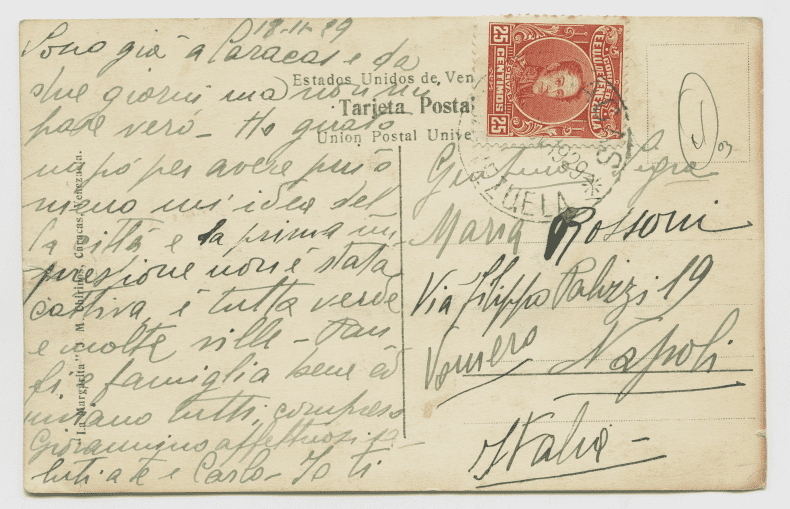 18-11-29
Sono già a Caracas e da
due giorni ma non mi
pare vero - Ho girato
un po' per avere più o
meno un'idea del
la città e la prima im
pressione non è stata
cattiva, è tutta verde
e molte ville -
e famiglia bene ed
inviano tutti, compreso
Giovannino affettuosi sa
luti a te e Carlo - Io ti
"La Margarita" J. M. Chirinos, Caracas, Venezuela.
Estados Unidos de Ven
Tarjeta Postal
Union Postal Unive
25 CENTIMOS 25
CORREOS
EE.UU. DE VENEZUELA
1929
ZUELA
Maria Rossoni
Via Filippo Palizzi 19
Vomero Napoli
Italia -